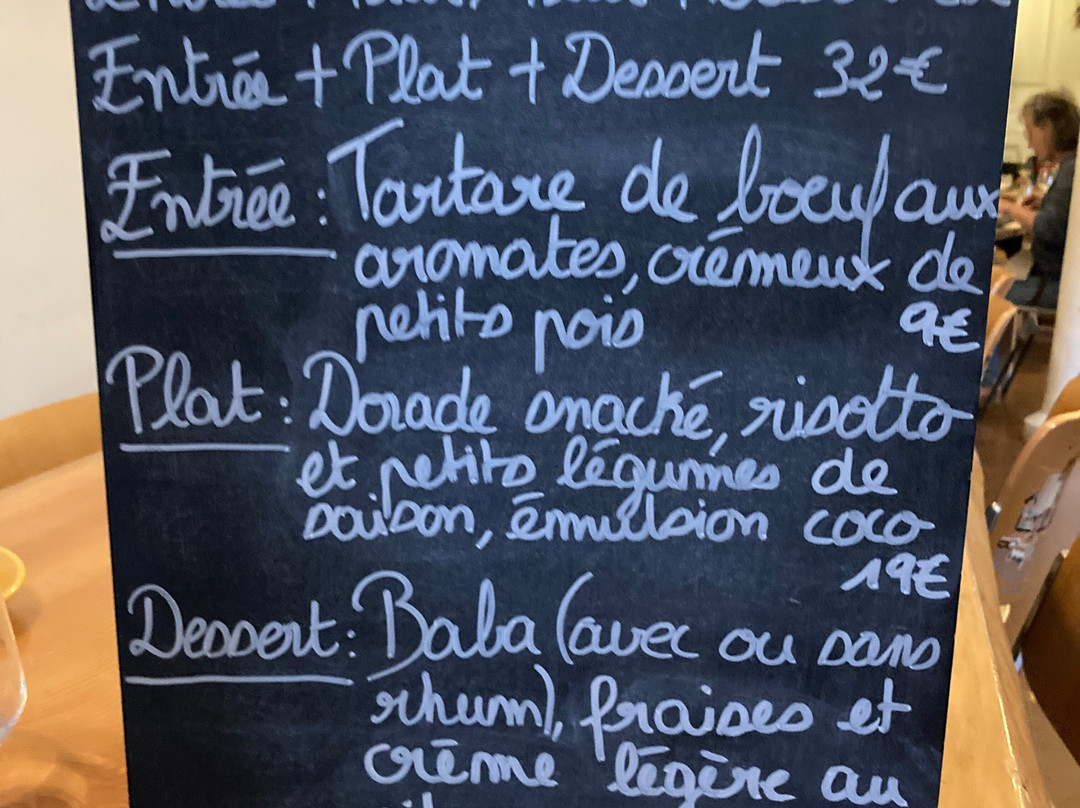 Entrée + Plat + Dessert 32€
Entrée : Tartare de boeuf aux
aromates, crémeux de
petits pois 9€
Plat : Dorade snacké, risotto
et petits légumes de
saison, émulsion coco
19€
Dessert : Baba (avec ou sans
rhum), fraises et
crème légère au